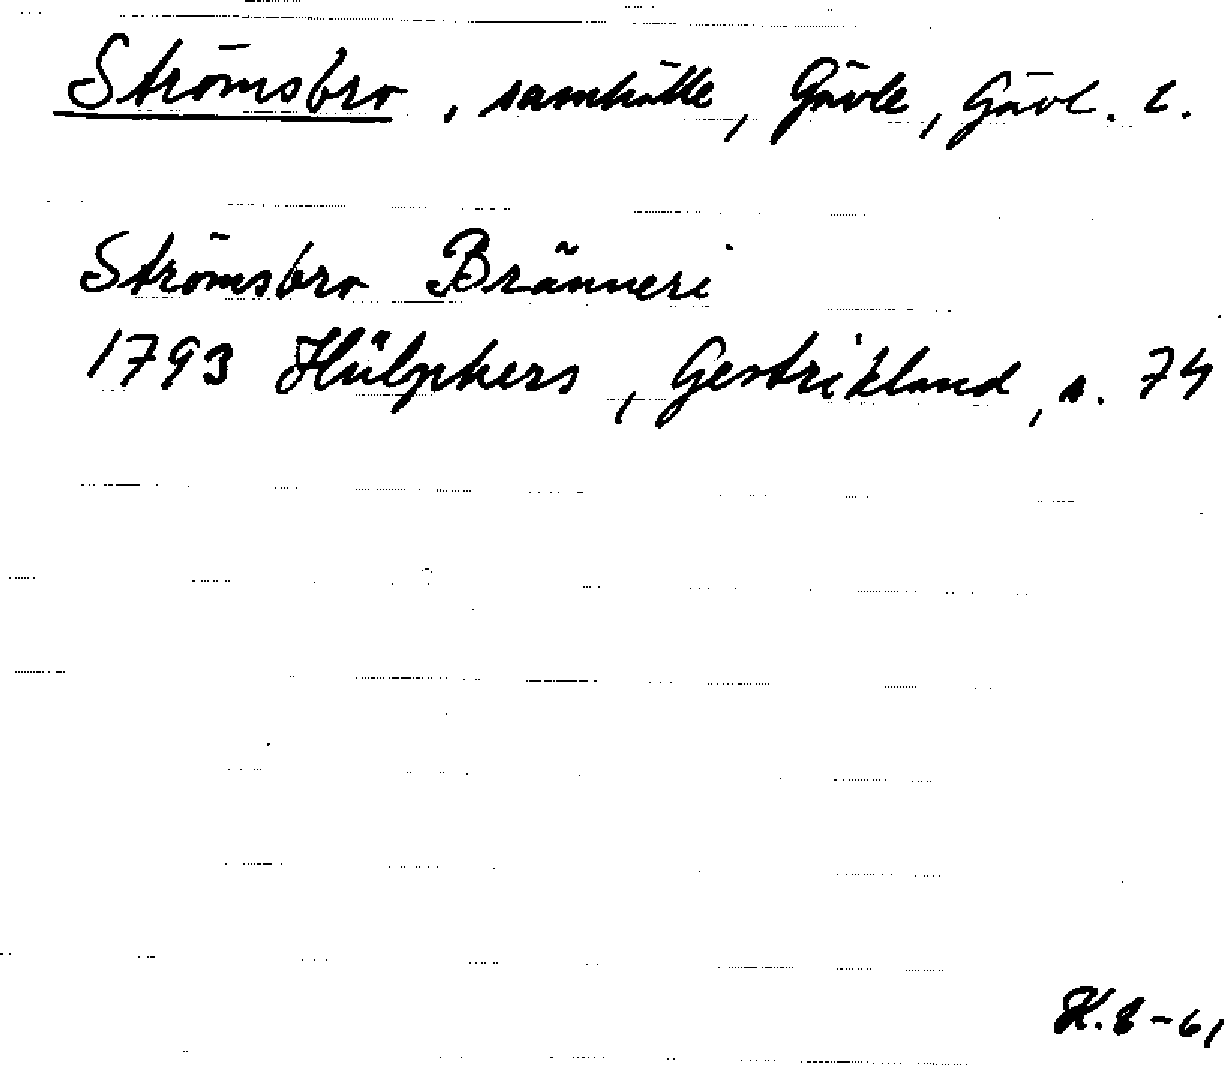 Strömsbro, samhälle, Gävle, Gävl. l.
Strömsbro Bränneri
1793 Hülphers, Gestrikland, s. 74